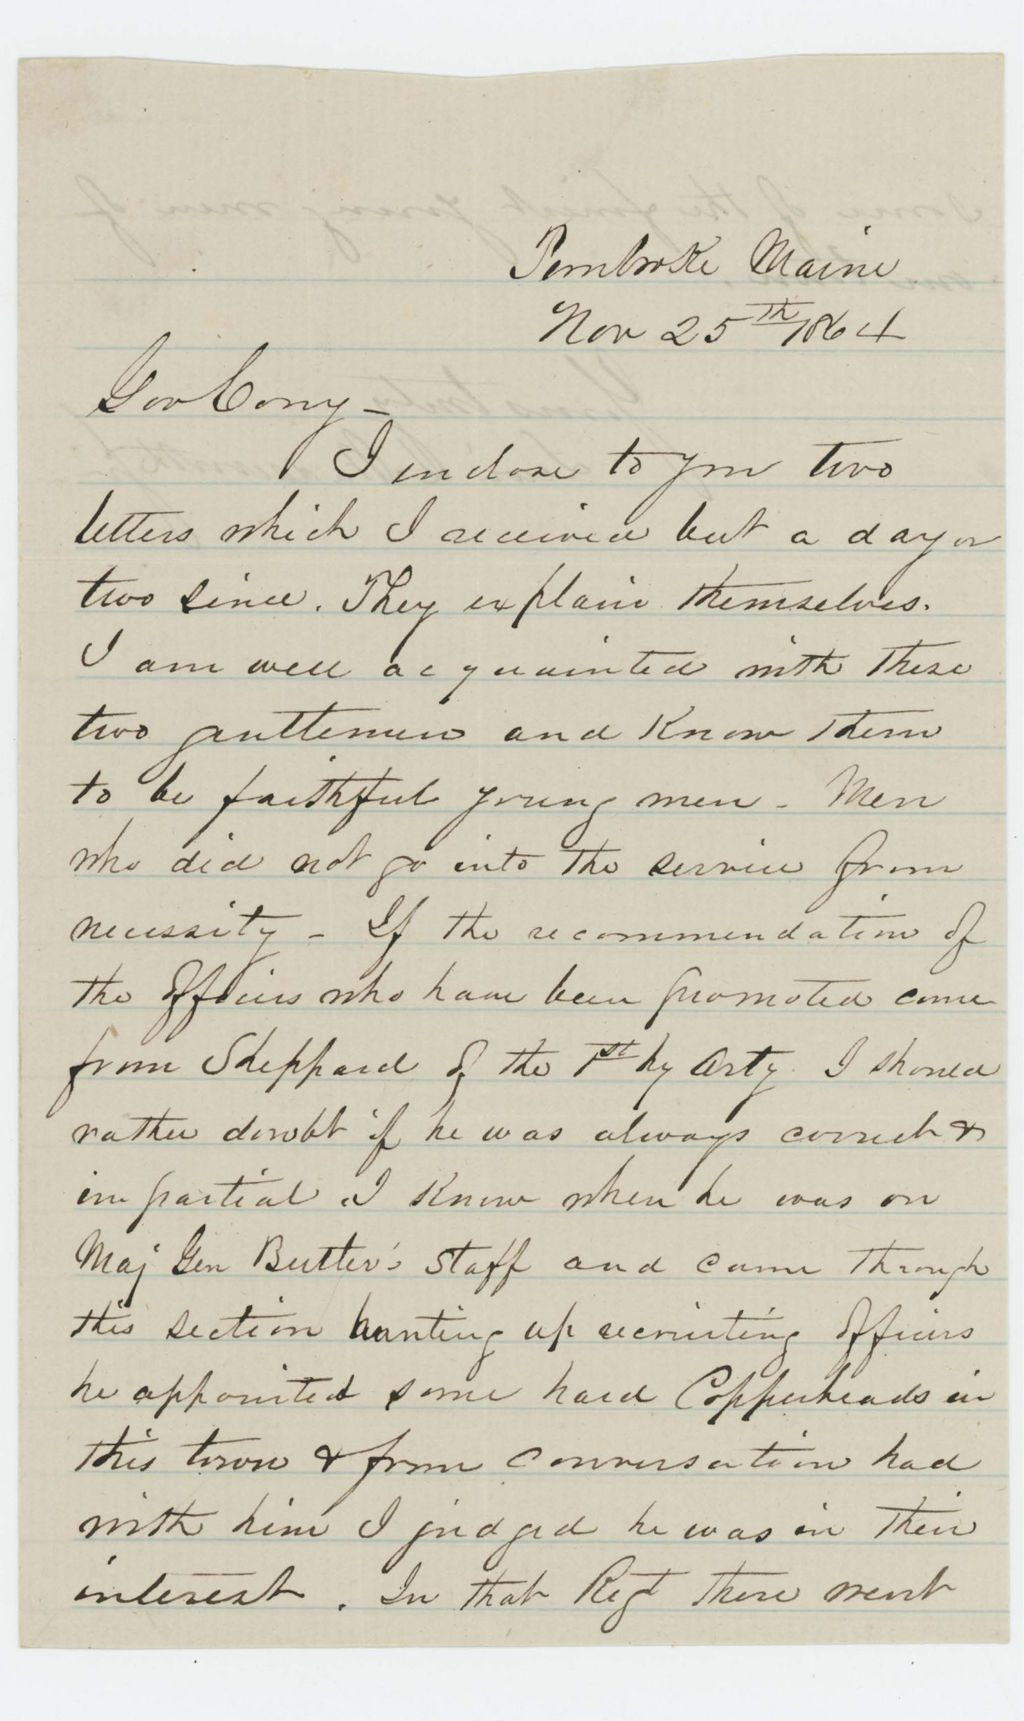 Pembroke Maine
Nov 25th 1864
Gov Cony -
I enclose to you two
letters which I received but a day or
two since. They explain themselves.
I am well acquainted with these
two genttemen and know them
to be faithful young men - Men
who did not go into the service from
necessity - If the recommendation of
the officers who have been promoted come
from Sheppard of the 1st hy Arty. I should
rather doubt if he was always correct &
impartial. I know when he was on
Maj Gen Butler's staff and came through
this section hunting up recruiting officers
he appointed some hard Copperheads in
this town & from conversation had
with him I judged he was in their
interest. In that Regt there went
some of the finest young men of
our town.
Yours truly